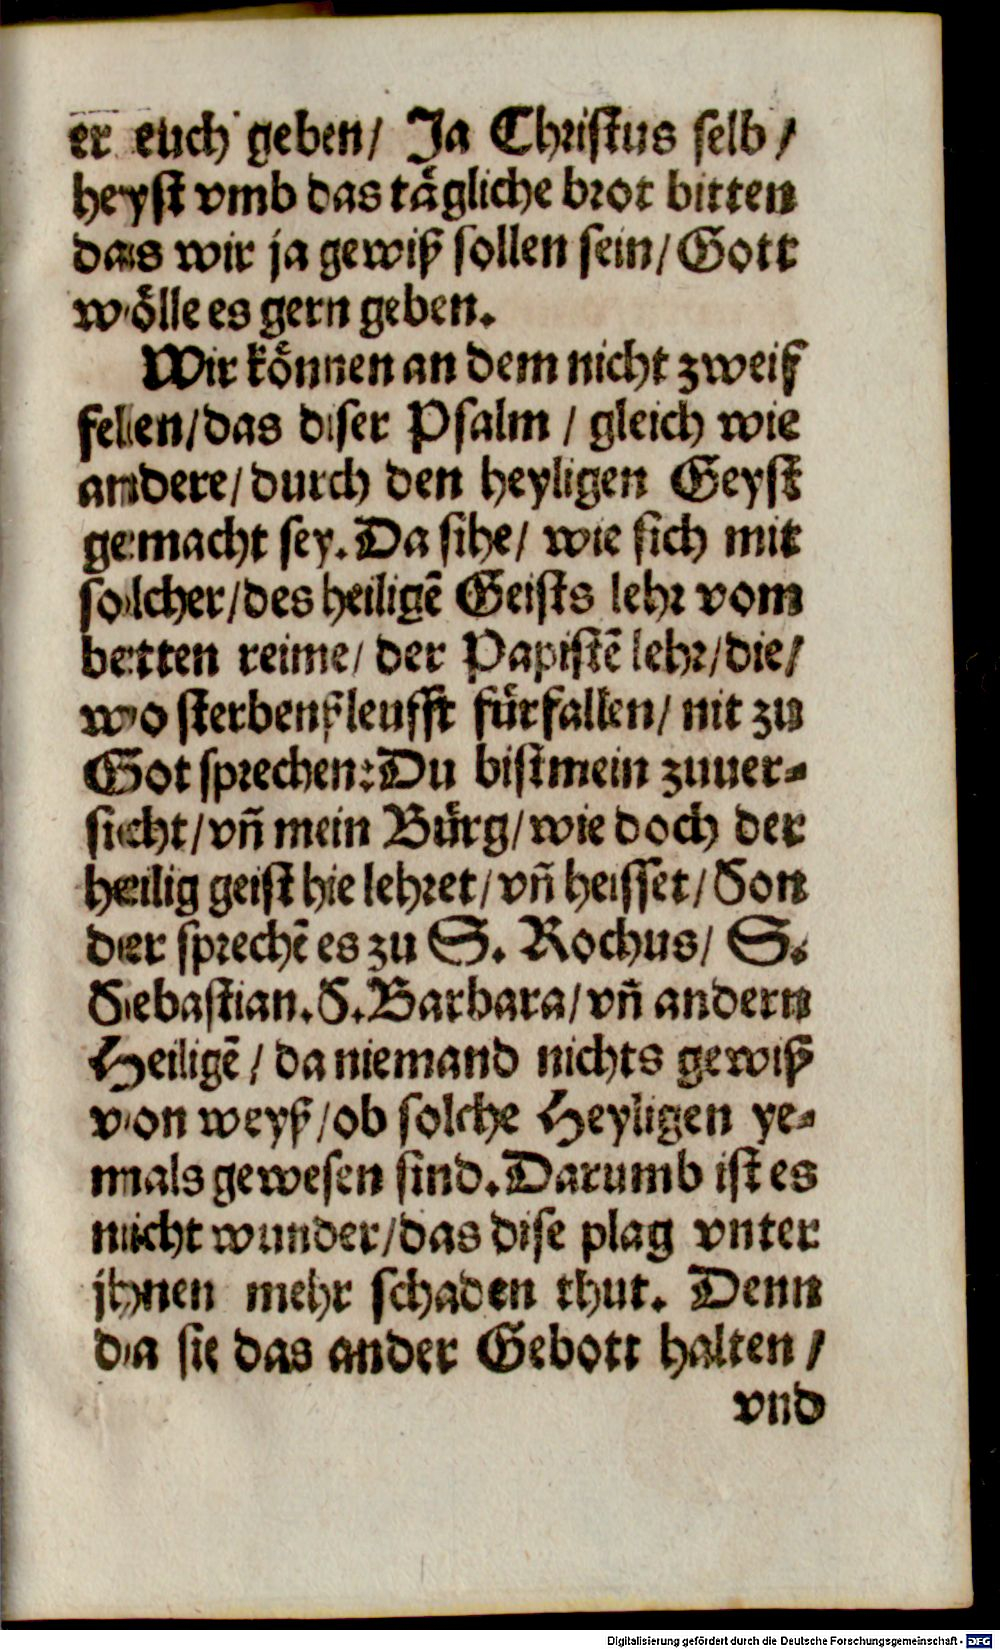 er euch geben/ Ja Christus selb/
heyst vmb das tägliche brot bitten
das wir ja gewiß sollen sein/ Gott
wölle es gern geben.
Wir können an dem nicht zweif
fellen/ das diser Psalm / gleich wie
andere/ durch den heyligen Geyst
gemacht sey. Da sihe/ wie sich mit
solcher/ des heiligẽ Geists lehr vom
betten reime/ der Papistẽ lehr/ die/
wo sterbenßleufft fürfallen/ nit zu
Got sprechen: Du bist mein zuuer-
sicht/ vñ mein Bürg/ wie doch der
heilig geist hie lehret/ vñ heisset/ Son
der sprechẽ es zu S. Rochus/ S.
Sebastian. S. Barbara/ vñ andern
Heiligẽ/ da niemand nichts gewiß
von weyß/ ob solche Heyligen ye-
mals gewesen sind. Darumb ist es
nicht wunder/ das dise plag vnter
jhnen mehr schaden thut. Denn
da sie das ander Gebott halten/
vnd
Digitalisierung gefördert durch die Deutsche Forschungsgemeinschaft - DFG